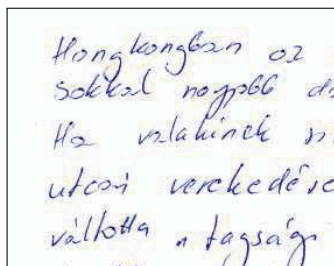 Hongkongban az
sokkal nagyobb
Ha valakinek
utcai verekedése
váltotta a tagsági